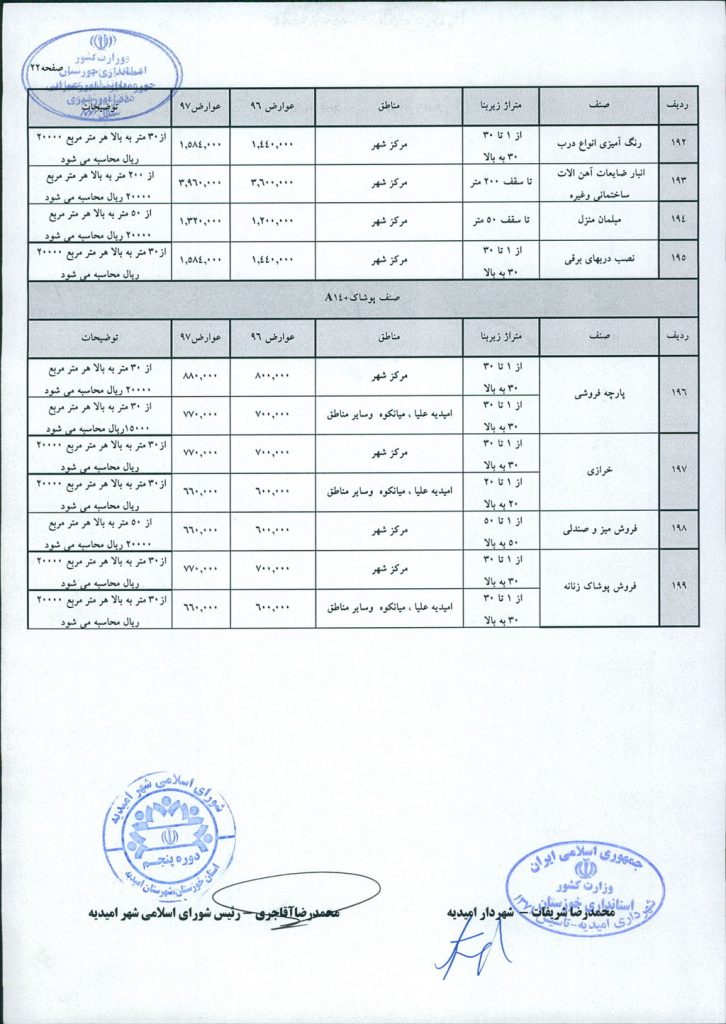 صفحه۲۲
وزارت کشور
استانداری خوزستان
ردیف صنف متراژ زیربنا مناطق عوارض ۹۶ عوارض۹۷ توضیحات
۱۹۲ رنگ آمیزی انواع درب از ۱ تا ۳۰ ۳۰ به بالا مرکز شهر ۱,٤٤۰,۰۰۰ ۱,۵۸٤,۰۰۰ از۳۰ متر به بالا هر متر مربع ۲۰۰۰۰ ریال محاسبه می شود
۱۹۳ انبار ضایعات آهن الات ساختمانی وغیره تا سقف ۲۰۰ متر مرکز شهر ۳,۶۰۰,۰۰۰ ۳,۹۶۰,۰۰۰ از ۲۰۰ متر به بالا هر متر مربع ۲۰۰۰۰ ریال محاسبه می شود
۱۹٤ مبلمان منزل تا سقف ۵۰ متر مرکز شهر ۱,۲۰۰,۰۰۰ ۱,۳۲۰,۰۰۰ از ۵۰ متر به بالا هر متر مربع ۲۰۰۰۰ ریال محاسبه می شود
۱۹۵ نصب دربهای برقی از ۱ تا ۳۰ ۳۰ به بالا مرکز شهر ۱,٤٤۰,۰۰۰ ۱,۵۸٤,۰۰۰ از۳۰ متر به بالا هر متر مربع ۲۰۰۰۰ ریال محاسبه می شود
صنف پوشاک+A۱٤
ردیف صنف متراژ زیربنا مناطق عوارض ۹۶ عوارض۹۷ توضیحات
۱۹۶ پارچه فروشی از ۱ تا ۳۰ ۳۰ به بالا مرکز شهر ۸۰۰,۰۰۰ ۸۸۰,۰۰۰ از ۳۰ متر به بالا هر متر مربع ۲۰۰۰۰ ریال محاسبه می شود
از ۱ تا ۳۰ ۳۰ به بالا امیدیه علیا ، میانکوه وسایر مناطق ۷۰۰,۰۰۰ ۷۷۰,۰۰۰ از ۳۰ متر به بالا هر متر مربع ۱۵۰۰۰ریال محاسبه می شود
۱۹۷ خرازی از ۱ تا ۳۰ ۳۰ به بالا مرکز شهر ۷۰۰,۰۰۰ ۷۷۰,۰۰۰ از۳۰ متر به بالا هر متر مربع ۲۰۰۰۰ ریال محاسبه می شود
از ۱ تا ۲۰ ۲۰ به بالا امیدیه علیا ، میانکوه وسایر مناطق ۶۰۰,۰۰۰ ۶۶۰,۰۰۰ از۳۰ متر به بالا هر متر مربع ۲۰۰۰۰ ریال محاسبه می شود
۱۹۸ فروش میز و صندلی از ۱ تا ۵۰ ۵۰ به بالا مرکز شهر ۶۰۰,۰۰۰ ۶۶۰,۰۰۰ از ۵۰ متر به بالا هر متر مربع ۲۰۰۰۰ ریال محاسبه می شود
۱۹۹ فروش پوشاک زنانه از ۱ تا ۳۰ ۳۰ به بالا مرکز شهر ۷۰۰,۰۰۰ ۷۷۰,۰۰۰ از۳۰ متر به بالا هر متر مربع ۲۰۰۰۰ ریال محاسبه می شود
از ۱ تا ۳۰ ۳۰ به بالا امیدیه علیا ، میانکوه وسایر مناطق ۶۰۰,۰۰۰ ۶۶۰,۰۰۰ از۳۰ متر به بالا هر متر مربع ۲۰۰۰۰ ریال محاسبه می شود
جمهوری اسلامی ایران
وزارت کشور
استانداری خوزستان
شهرداری امیدیه-تاسیس
محمدرضا شریفات – شهردار امیدیه
شورای اسلامی شهر امیدیه
دوره پنجم
استان خوزستان،شهرستان امیدیه
محمدرضاآقاجری – رئیس شورای اسلامی شهر امیدیه